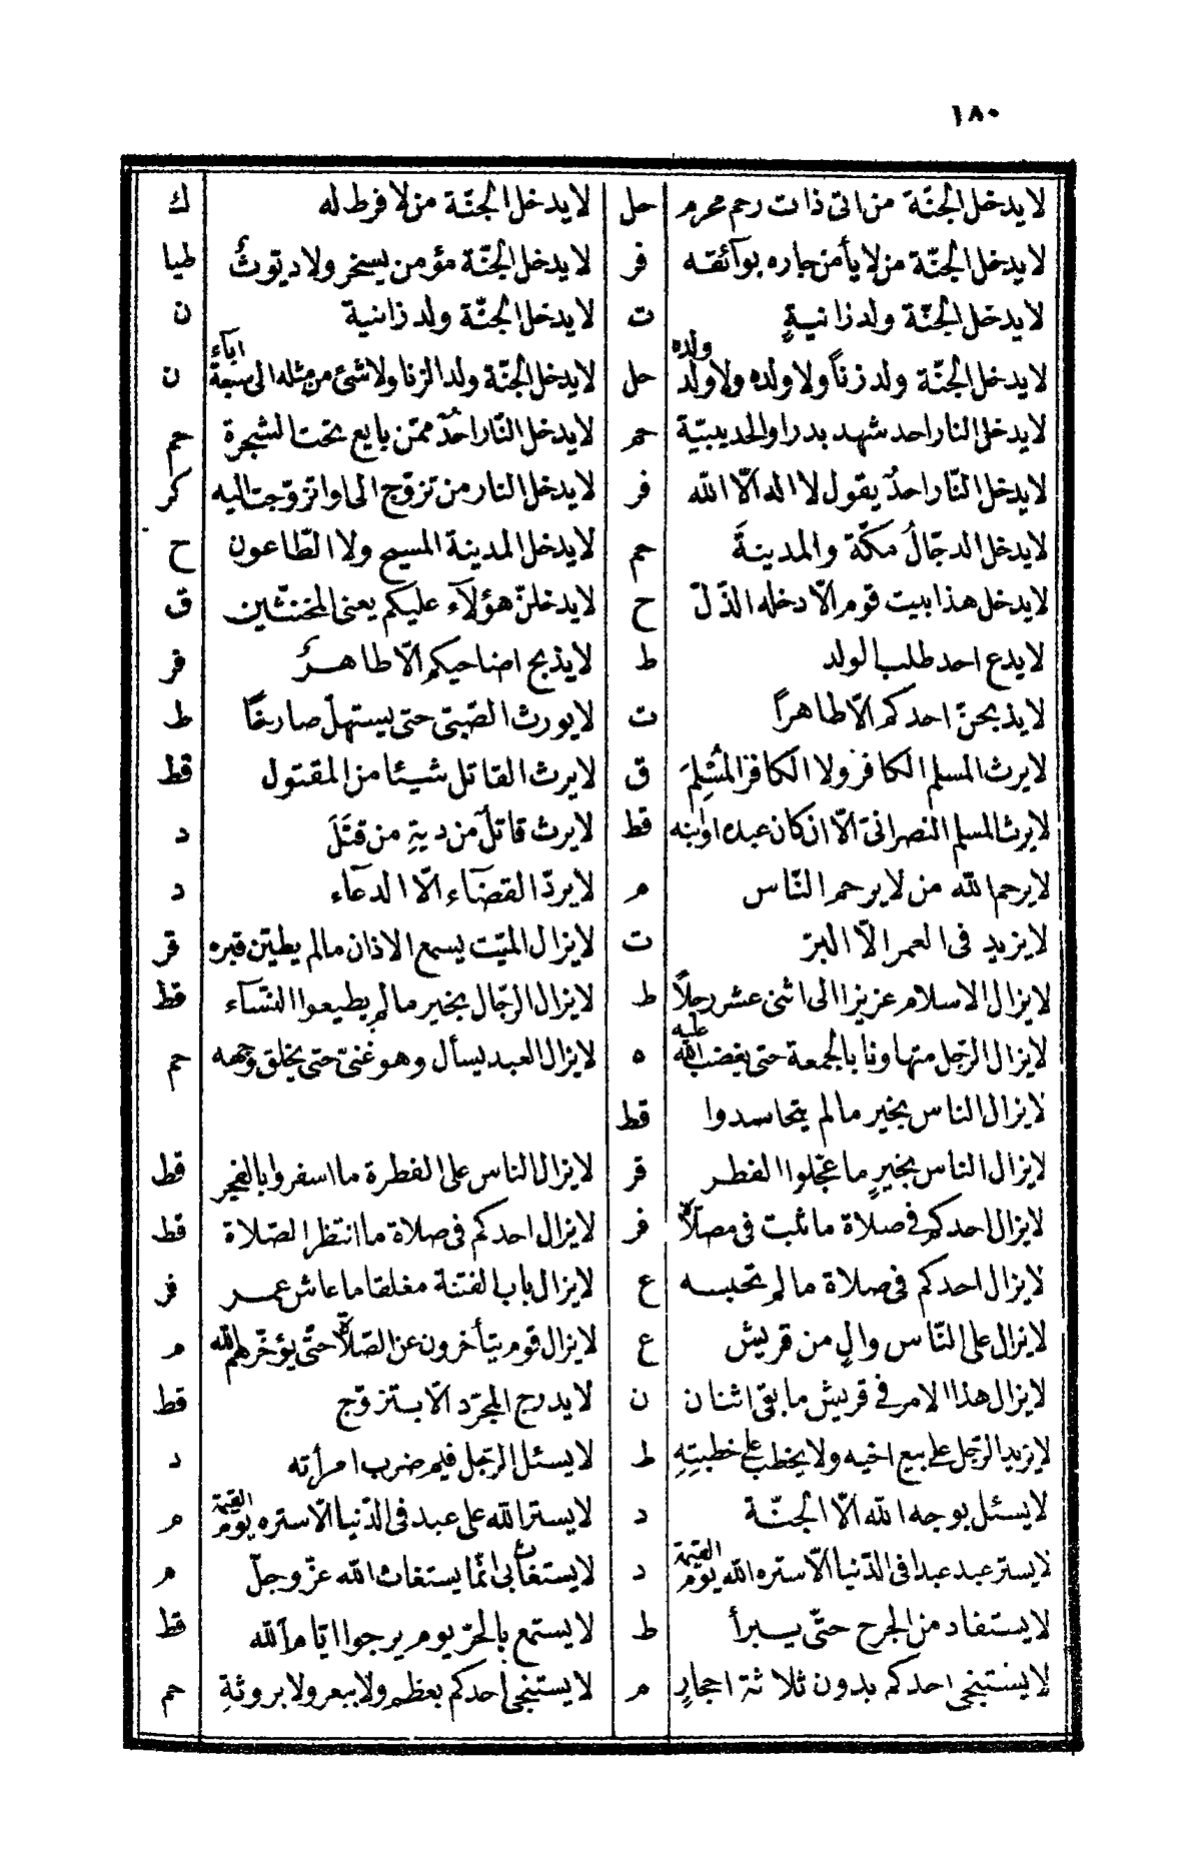 ١٨٠
لا يدخل الجنّة من اتى ذات رحم محرم حل لا يدخل الجنّة من لا فرط له ك
لا يدخل الجنّة من لا يأمن جاره بوآئقه فر لا يدخل الجنّة مؤمن يسخر ولا ديّوثٌ طيا
لا يدخل الجنّة ولد زانيةٍ ت لا يدخل الجنّة ولد زانية ن
لا يدخل الجنّة ولد زناً ولا ولده ولا ولد ولده حل لا يدخل الجنّة ولد الزنا ولا شئ من مثله الى سبعة ابآء ن
لا يدخل النار احد شهد بدرا والحديبيّة حم لا يدخل النّار احدٌ ممّن بايع تحت الشجرة حم
لا يدخل النّار احدٌ يقول لا اله الّا الله فر لا يدخل النار من تزوّج الى او اتزوّجت اليه كر
لا يدخل الدجّالُ مكّة والمدينةَ حم لا يدخل المدينة المسيح ولا الطّاعون ح
لا يدخل هذا بيت قوم الّا دخله الذّلّ ح لا يدخلنّ هؤلآء عليكم يعنى المخنّثين ق
لا يدع احد طلب الولد ط لا يذبح اضاحيكم الّا طاهرٌ فر
لا يذبحنّ احدكم الّا طاهراً ت لا يورث الصّبىّ حتى يستهلّ صارخًا ط
لا يرث المسلم الكافر ولا الكافر المُسْلِمَ ق لا يرث القاتل شيئا من المقتول قط
لا يرث المسلم النصرانىّ الّا ان كان عبده او ابنه قط لا يرث قاتلٌ من ديةِ من قَتَلَ د
لا يرحم الله من لا يرحم النّاس م لا يردّ القضآء الّا الدعآء د
لا يزيد فى العمر الّا البرّ ت لا يزال الميّت يسمع الاذان ما لم يطيّن قبره قر
لا يزال الاسلام عزيزا الى اثنى عشر رجلاً ط لا يزال الرجّال بخير ما لم يطيعوا النسّآء قط
لا يزال الرّجل متهاونا بالجمعة حتى يغضب الله عليه ه لا يزال العبد يسأل وهو غنىّ حتى يخلق وجهه حم
لا يزال الناس بخير ما لم يتحاسدوا قط
لا يزال الناس بخيرٍ ما عجّلوا الفطر قر لا يزال الناس على الفطرة ما اسفروا بالفجر قط
لا يزال احدكم فى صلاة ما ثبت فى مصلّاه فر لا يزال احدكم فى صلاة ما انتظر الصّلاة قط
لا يزال احدكم فى صلاة ما لم تحبسه ع لا يزال باب الفتنة مغلقا ما عاش عمر فر
لا يزال على النّاس والٍ من قريش ع لا يزال قوم يتأخرون عن الصّلاة حتّى يؤخّرهم الله م
لا يزال هذا الامر فى قريش ما بقى اثنان ن لا يدرج المجرّد الّا بتزوّج قط
لا يزيد الرّجل على بيع اخيه ولا يخطب على خطبتِهِ ط لا يسئل الرّجل فيم ضرب امرأته د
لا يسئل بوجه الله الّا الجنّة د لا يستر الله على عبد فى الدّنيا الّا ستره يوم القيٰمة م
لا يستر عبد عبدا فى الدّنيا الّا ستره الله يوم القيٰمة د لا يستغاث بى انّما يستغاث الله عزّ وجلّ م
لا يستقاد من الجرح حتّى يبرأ ط لا يستمع بالحرّ يوم يرجوا ايّام الله قط
لا يستنجى احدكم بدون ثلاثة احجارٍ م لا يستنجى احدكم بعظم ولا ببعر ولا بروثةِ حم